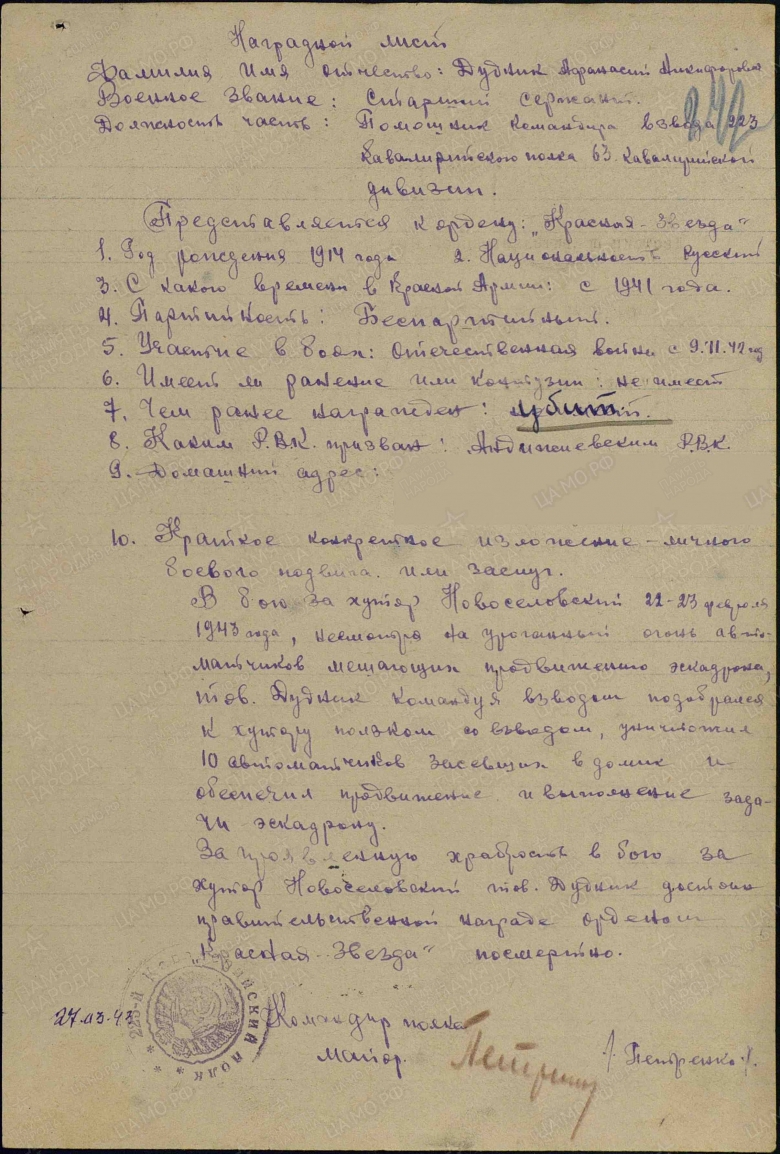 Наградной лист
Фамилия Имя отчество: Дудник Афанасий Никифорович
Военное звание: Старший сержант.
Должность часть: Помошник командира взвода 223
кавалерийского полка 63 кавалерийской
дивизии.
Представляется к ордену: „Красная-Звезда"
1. Год рождения 1914 года 2. Национальность Русский
3. С какого времени в Красной Армии: с 1941 года.
4. Партийность: Беспартийный.
5. Участие в боях: Отечественная война с 9.11.42 год
6. Имеет ли ранение или контузии: не имеет
7. Чем ранее награжден: убит
8. Каким Р.В.К. призван: Андижневским Р.В.К.
9. Домашний адрес:
10. Краткое конкретное изложение-личного
боевого подвига или заслуг.
В бою за хутор Новоселовский 22-23 февраля
1943 года, несмотря на ураганный огонь авто-
матчиков мешающих продвижению эскадрона,
тов. Дудник командуя взводом подобрался
к хутору ползком со взводом, уничтожил
10 автоматчиков засевших в домик и
обеспечил продвижение и выполнение зада-
чи эскадрону.
За проявленную храбрость в бою за
хутор Новоселовский тов. Дудник достоин
правительственной награде орденом
„Красная-Звезда" посмертно.
27.03.43
Командир полка
Майор.
/Петренко/.